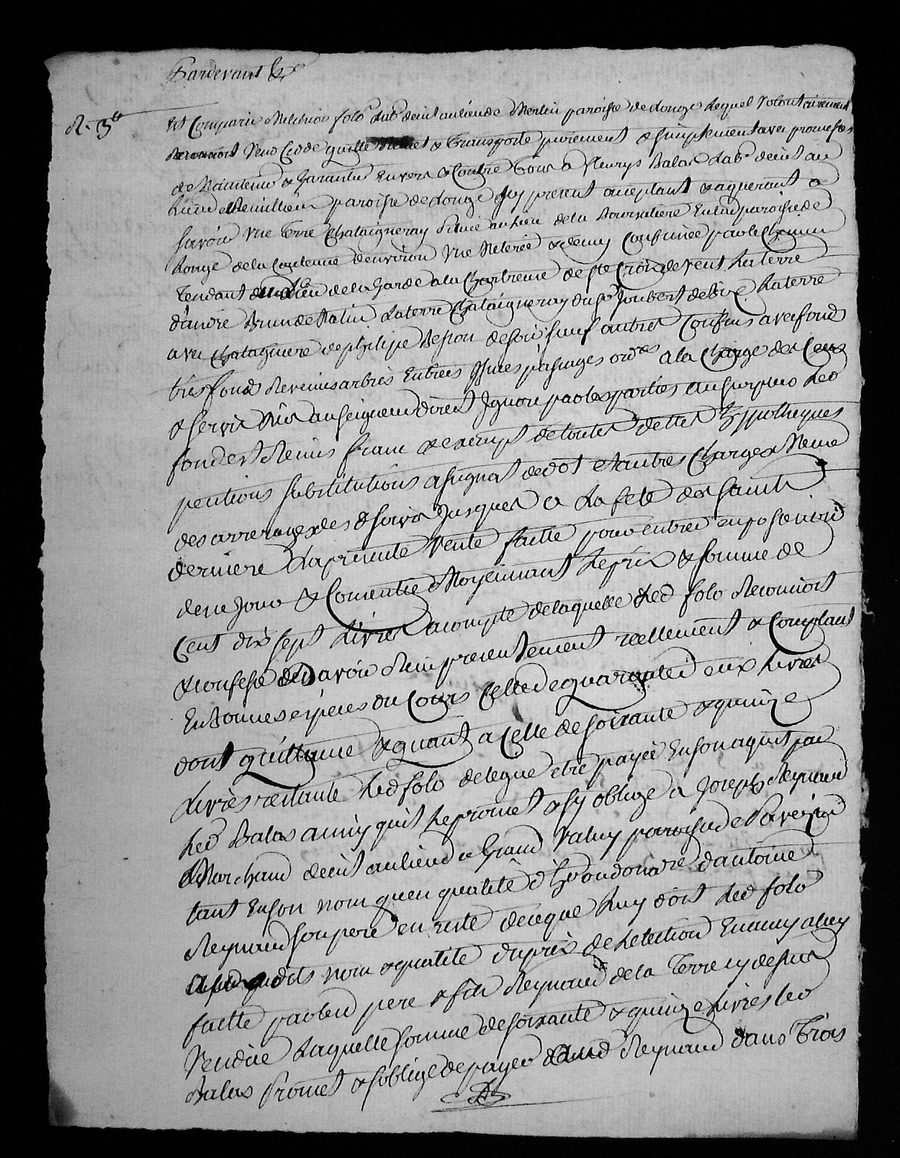 Pardevant &c
R. 3#
Est Comparu Melchior folo Lab. demt au lieu de Merlin paroisse de Longe Lequel Volontairement
Reconnoit Vend Cedde quitte & transporte purement & simplement avec promesses
de Maintenir & Garantir Envers & Contre tous a fleurys Balas Lab. demt au
Lieu paroisse de Longe Icy present aceptant & aquerant a
savoir Une terre Chataigneray situé au Lieu de la Boursatiere En lad paroisse de
Longe de la Contenue denviron Une Meterée & demy Confinée par le Chemin
Tendant du Lieu de la Garde a la Chartreuse de Ste Croix de Vent La terre
d'andré Brun de Matin La terre Chataigneray du Sr Joubert de bize La terre
avec Chataignere de philipe de soir sauf autres Confins avec fond
tres fond Revenus arbres Entrées Issues passages ordres a la Charge des Cens
& servis dûs au seigneur direct Ignoré par les parties au surplus Led
fond est Remis franc & exempt de toutes dettes Hypotheques
pentions substitutions asignat de dot & autres Charges Meme
des arrerages des d servis Jusques a La fete de la saint
derniere La presente Vente faitte pour entrer en possession
de ce Jour & Consentie Moyennant Le prix & somme de
Cent dix sept Livres acompte de laquelle Led folo Reconnoit
& confesse davoir Reçu presentement reellement & Comptant
En bonnes especes du Cours Celle de quarante deux Livres
dont quittance & quant a Celle de soixante & quinze
Livres restante Led folo delegue etre payée En son aquit par
Led Balas ainsy quil Le promet & sy oblige a Joseph Reynaud
Marchand demt au lieu de Grand Valuy paroisse de Pavezin
tant En son nom quen qualité d'heredit d'antoine
Reynaud son pere en reste de ce que Luy doit Led folo
nom & qualité du prix de
faitte par led pere & fils Reynaud de la Terre cy dessus
Vendue Laquelle somme de soixante & quinze Livres led
Balas Promet & soblige de payer aud Reynaud dans Trois